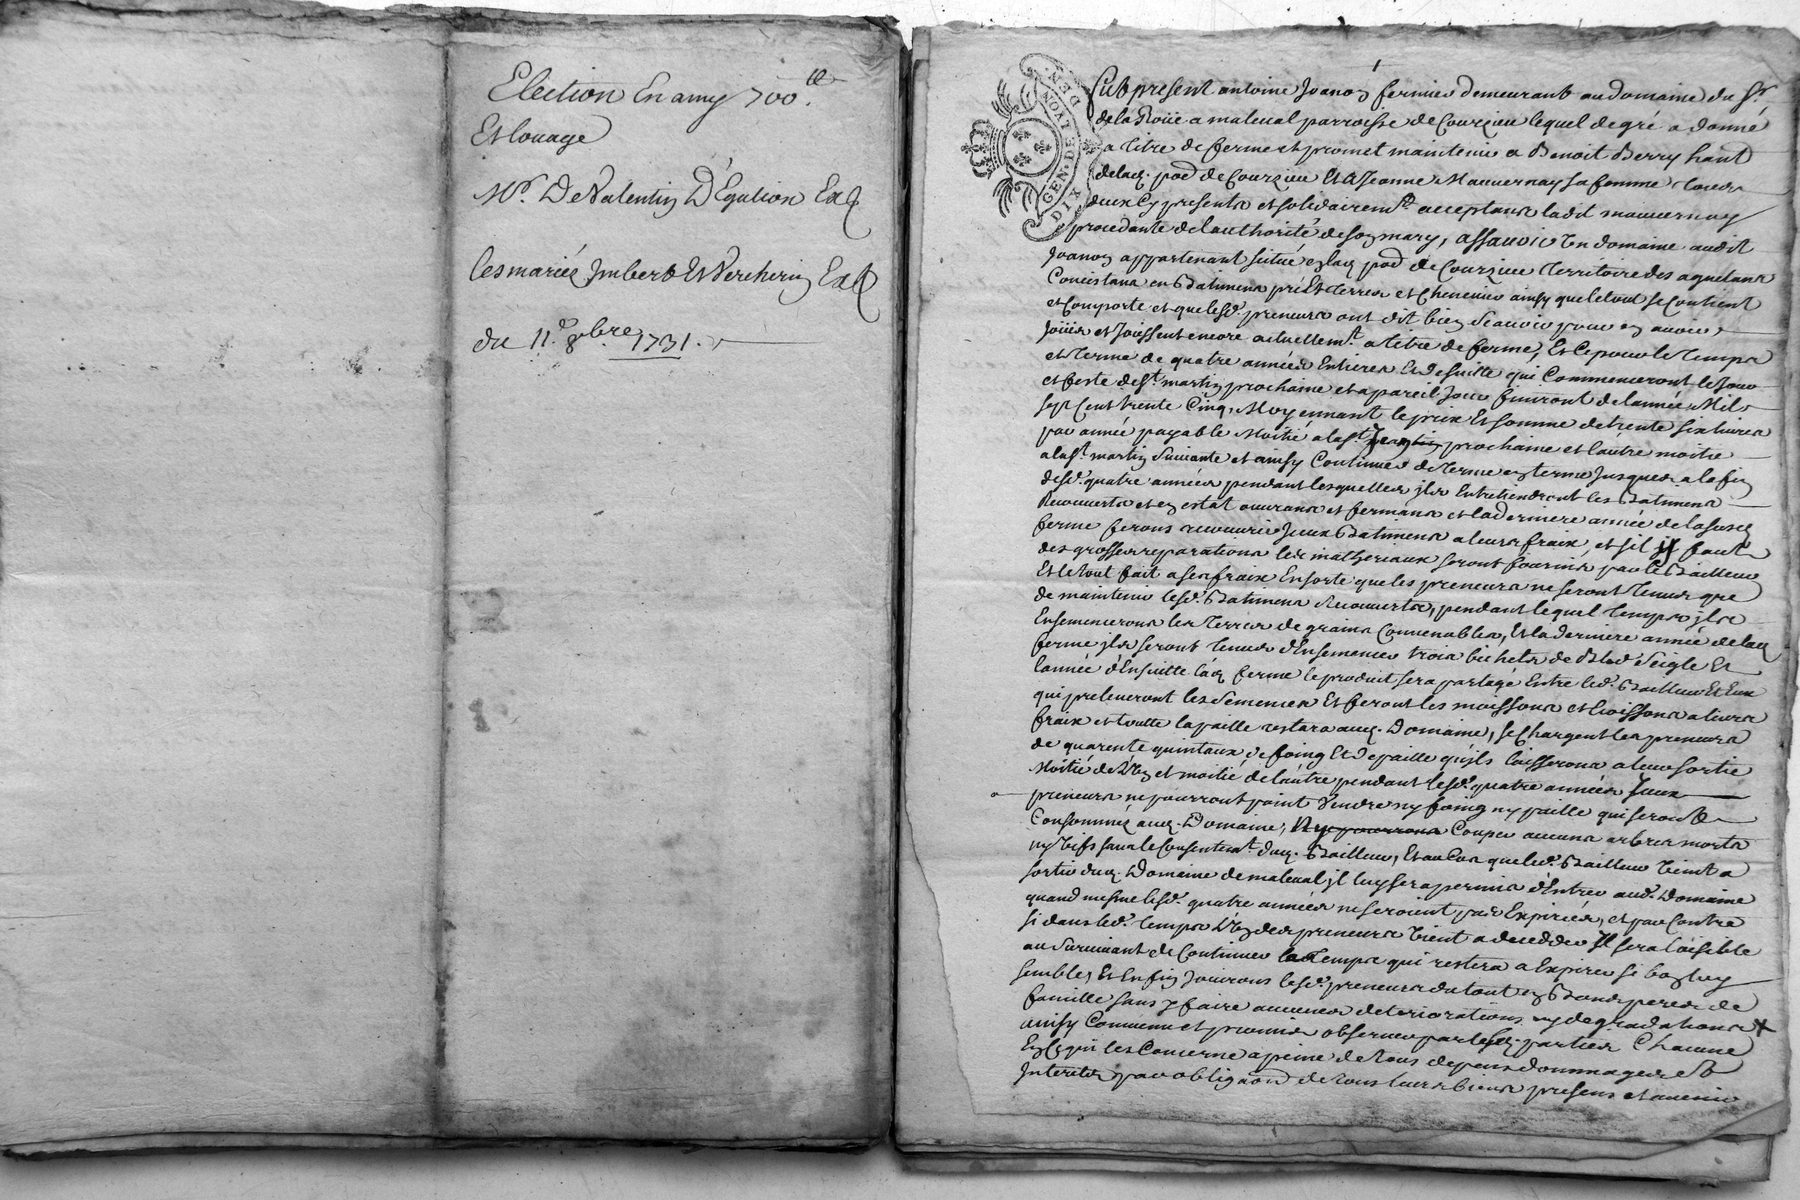 Election En amy 700.lt
Et louage
Mr. De Valentin D'Egulion Exp
les mariés Imbert Et Vercherin Exp
du 11.e 8bre 1731.
1
GEN. DE LYON
DIX DEN.
fut present antoine Joanon fermier demeurant au domaine du Sr
de la Roüe a maleval parroisse de Courzieu lequel de gré a donné
a titre de ferme et promet maintenir a Benoit Berry hant
delad. pad de Courzieu Et A Jeanne Mauvernay sa femme tous
deux Cy presents et solidairemt acceptans ladit mauvernay
procedante de l'authorité de son mary, assavoir un domaine audit
Joanon appartenant situé en lad pad de Courzieu territoire des
Concistans en Batimens prés Et terres et Cheneviers ainsy que le tout se Contient
et Comporte et que lesd. preneurs ont dit bien sçavoir pour en avoir
Joüir et Joüissent encore actuellemt. a titre de ferme, Et Ce pour le temps
et terme de quatre années Entieres Et de suitte qui Commenceront le Jour
et feste de St. martin prochaine et a pareil Jour finiront de l'année Mil
sept Cent trente Cinq, Moyennant le prix Et somme de trente six livres
par année payable Moitié a la St. prochaine et l'autre moitié
a la St. martin suivante et ainsy Continuer de terme en terme Jusques a la fin
desd. quatre années pendant lesquelles ils Entretiendront les Batimens
Recouverts et en estat ouvrans et fermans et la derniere année de la susd
ferme ferons recouvrir Iceux Batimens a leurs fraix, et sil y faut
des grosses reparations les matheriaux seront fournis par le Bailleur
Et le tout fait a ses fraix En sorte que les preneurs ne seront tenus que
de maintenir lesd. Batimens Recouverts, pendant lequel temps ils
Ensemencerons les terres de grains Convenables, Et la derniere année de lad
ferme ils seront tenus d'Ensemencer trois bichets de Bled Seigle Et
l'année d'Ensuitte lad ferme le produit sera partagé Entre led. Bailleur Et Eux
qui preleveront les semences Et feront les moissons et a leurs
fraix et toutte la paille restara aud. Domaine, se Chargent les preneurs
de quarente quintaux de foing Et de paille qu'ils laisserons a leur sortie
Moitié de l'un et moitié de l'autre pendant lesd. quatre années Iceux
preneurs ne pourront point Vendre ny foing ny paille qui seront
Consommés aud. Domaine, Ny pourrons Couper aucuns arbres morts
ny vifs sans le Consentemt. dud. Bailleur, Et au Cas que led. Bailleur vint a
sortir dud. Domaine de maleval il luy sera permis d'Entrer aud. Domaine
quand mesme lesd. quatre années ne seroient pas Expirées, et par Contre
si dans led. temps l'un des preneurs vient a decedder Il sera loisible
au survivant de Continuer le temps qui restera a Expirer si bon luy
semble, Et Enfin Jouirons lesd. preneurs du tout en Bons peres de
famille sans y faire aucunes deteriorations ny degradations +
ainsy Convenu et promis observer par lesd. parties Chacune
En Ce qui les Concerne a peine de tous depens dommages et
Interets par obligaon de tous leurs biens presens et avenir